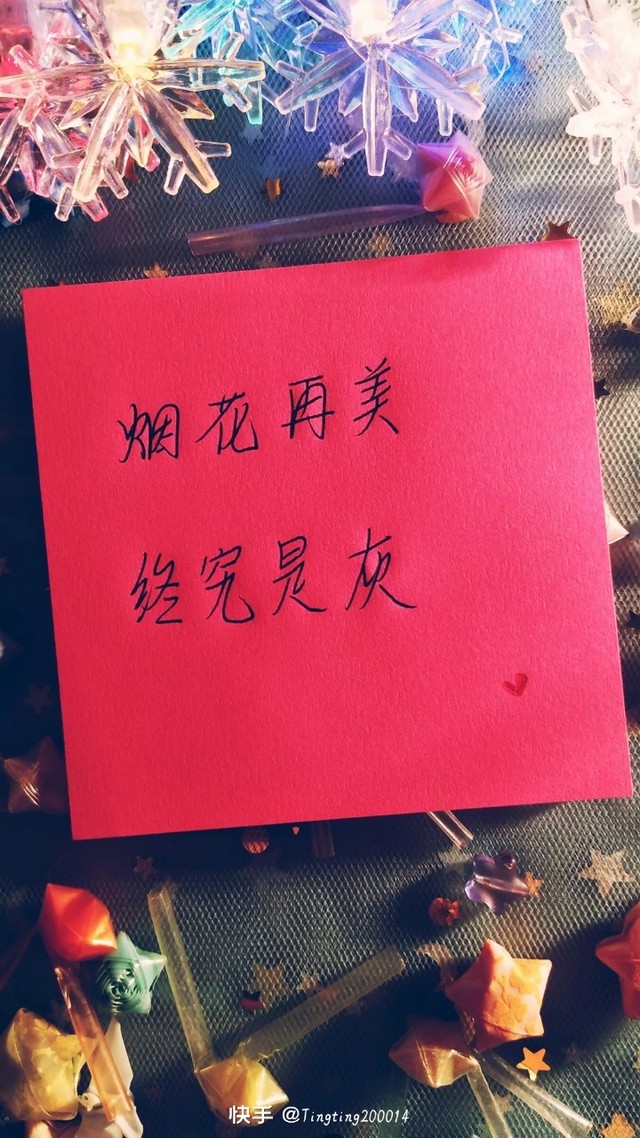 烟花再美
终究是灰
快手 @Tingting200014